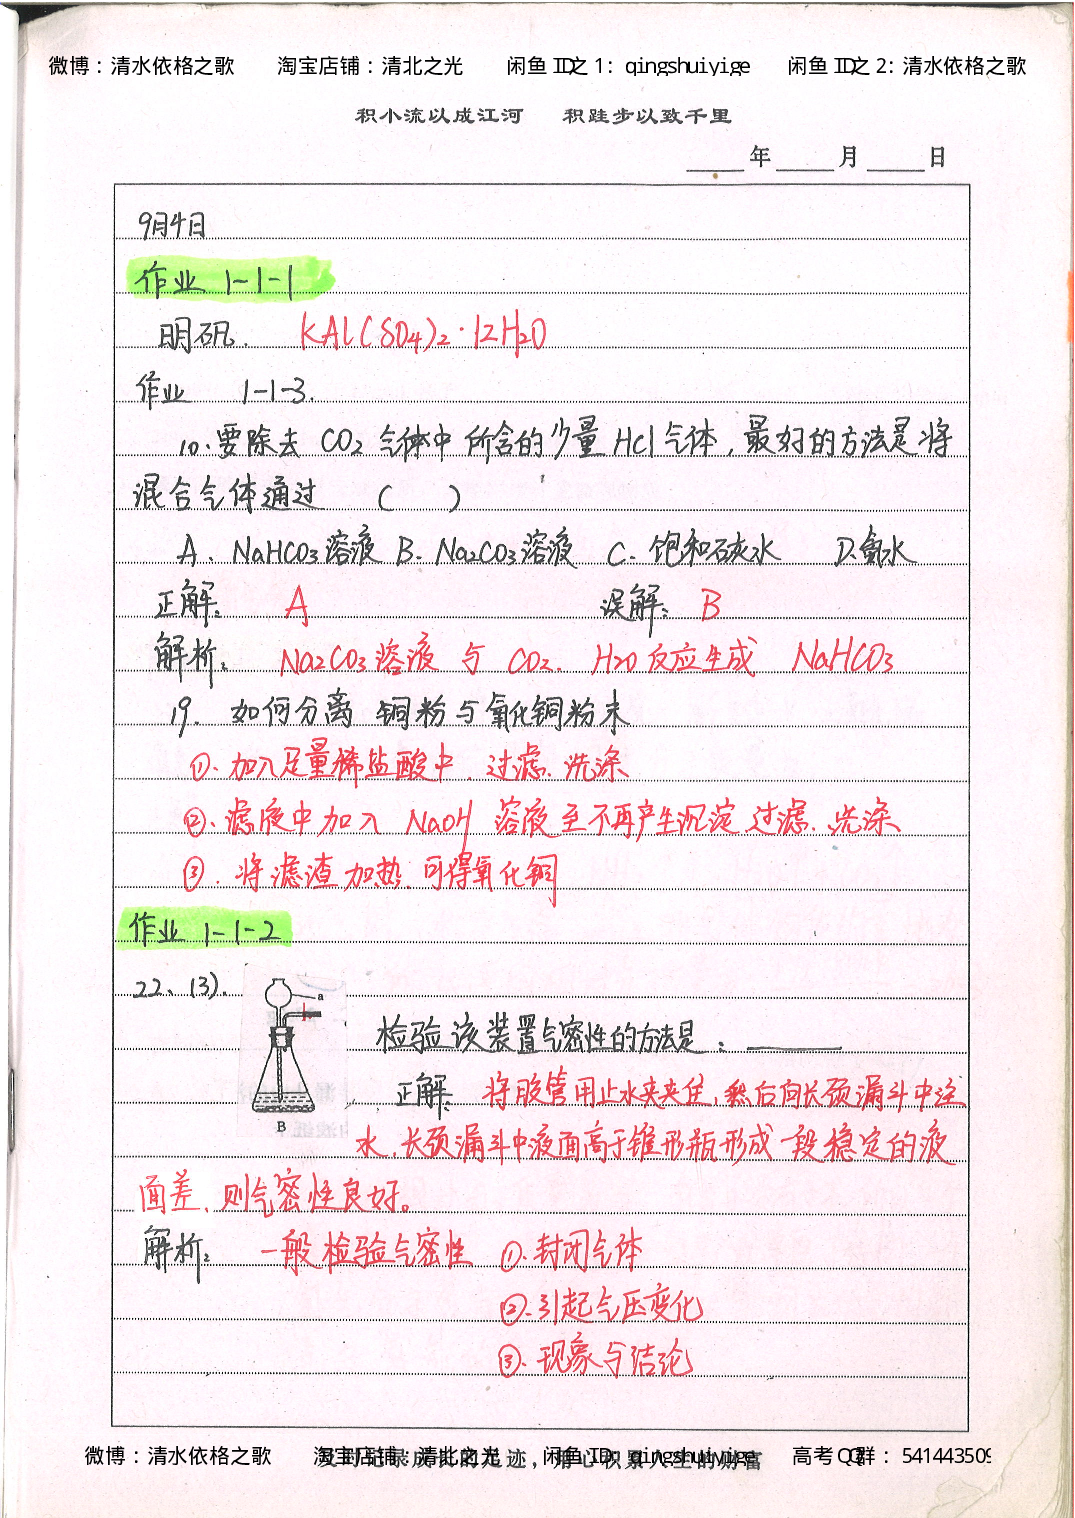 微博：清水依格之歌 淘宝店铺：清北之光 闲鱼 ID之 1: qingshuiyige 闲鱼 ID之 2: 清水依格之歌
积小流以成江河 积跬步以致千里
年 月 日
9月4日
作业 1-1-1
明矾. KAl(SO4)2·12H2O
作业 1-1-3.
10.要除去 CO2 气体中所含的少量 HCl气体,最好的方法是将
混合气体通过 ( )
A. NaHCO3溶液 B. Na2CO3溶液 C. 饱和石灰水 D.氨水
正解: A 误解: B
解析: Na2CO3溶液 与 CO2. H2O反应生成 NaHCO3
19. 如何分离 铜粉与氧化铜粉末
①.加入足量稀盐酸中.过滤.洗涤
②.滤液中加入 NaOH 溶液至不再产生沉淀 过滤.洗涤
③.将滤渣加热.可得氧化铜
作业 1-1-2
22、(3).
a
b
B
检验该装置气密性的方法是:
正解: 将胶管用止水夹夹住,然后向长颈漏斗中注
水.长颈漏斗中液面高于锥形瓶形成一段稳定的液
面差.则气密性良好。
解析: 一般检验气密性 ①.封闭气体
②.引起气压变化
③.现象与结论
微博：清水依格之歌 淘宝店铺：清北之光 闲鱼 ID: qingshuiyige 高考 QQ群： 541443509